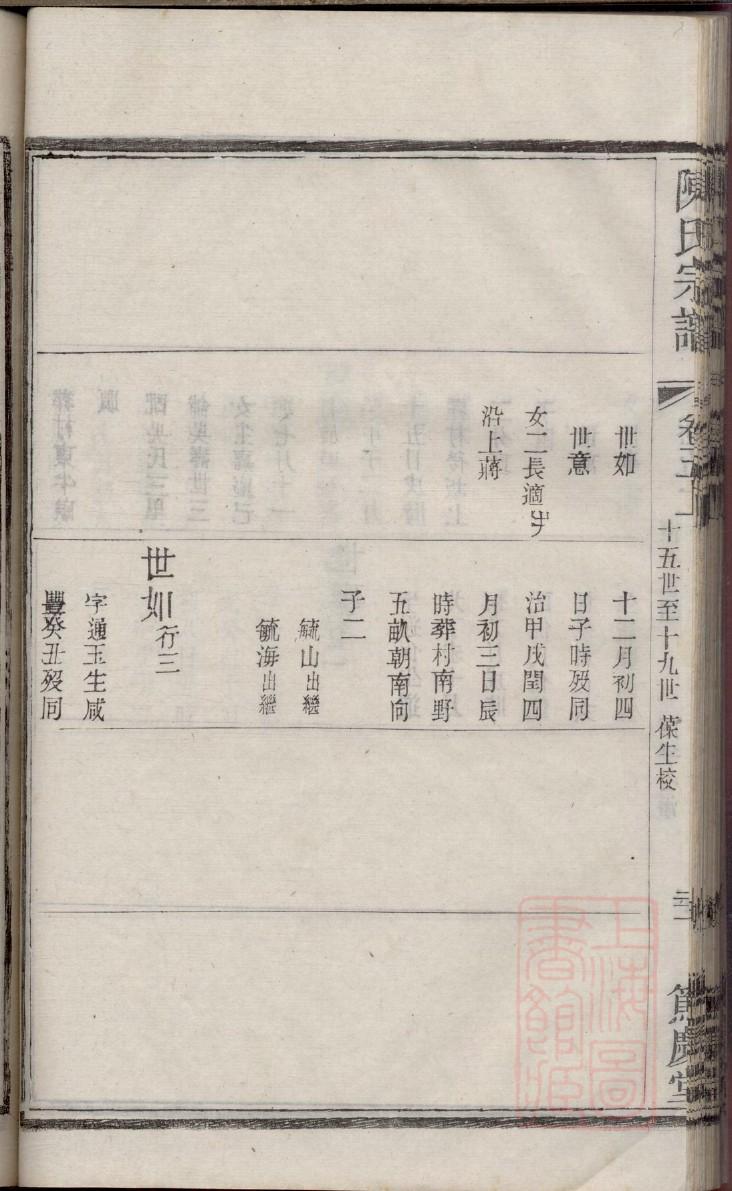 陳氏宗譜
卷五
十五世至十九世 葆生校
篤慶堂
世如
世意
女二長適
沿上蔣
十二月初四
日子時歿同
治甲戌閏四
月初三日辰
時葬村南野
五畝朝南向
子二
毓山出繼
毓海出繼
世如行三
字通玉生咸
豐癸丑歿同
上海圖書館藏